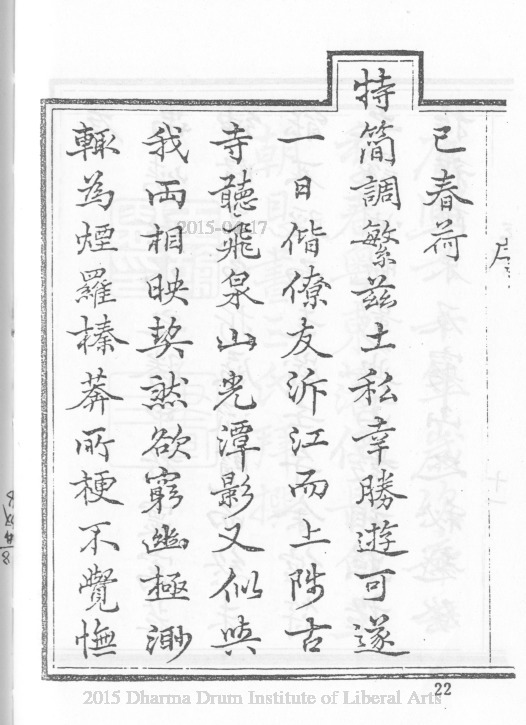 序
已春荷
特簡調繁茲土私幸勝遊可遂
一日偕僚友泝江而上陟古
寺聽飛泉山光潭影又似與
我両相映契然欲窮幽極渺
輙為煙羅榛莽所梗不覺憮
22
2015-04-17
2015 Dharma Drum Institute of Liberal Arts